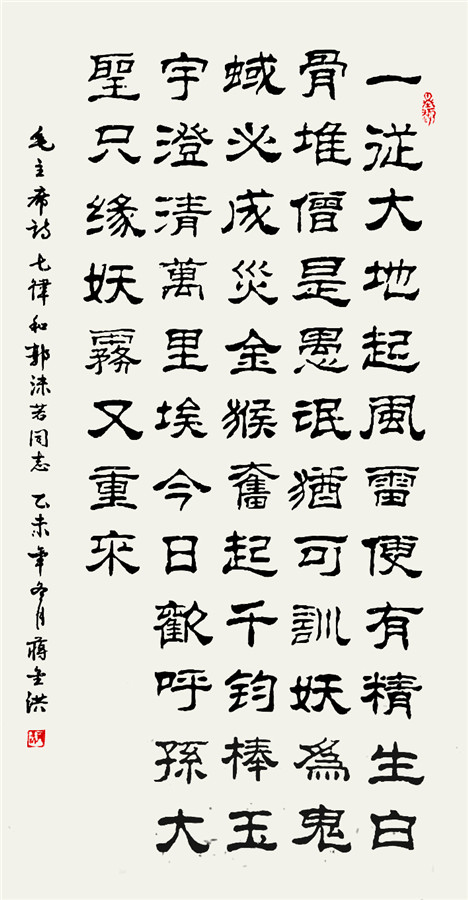 一従大地起風雷便有精生白
骨堆僧是愚氓猶可訓妖為鬼
蜮必成災金猴奮起千鈞棒玉
宇澄清萬里埃今日歡呼孫大
聖只緣妖霧又重來
毛主席詩七律和郭沫若同志 乙未年冬月蔣金洪